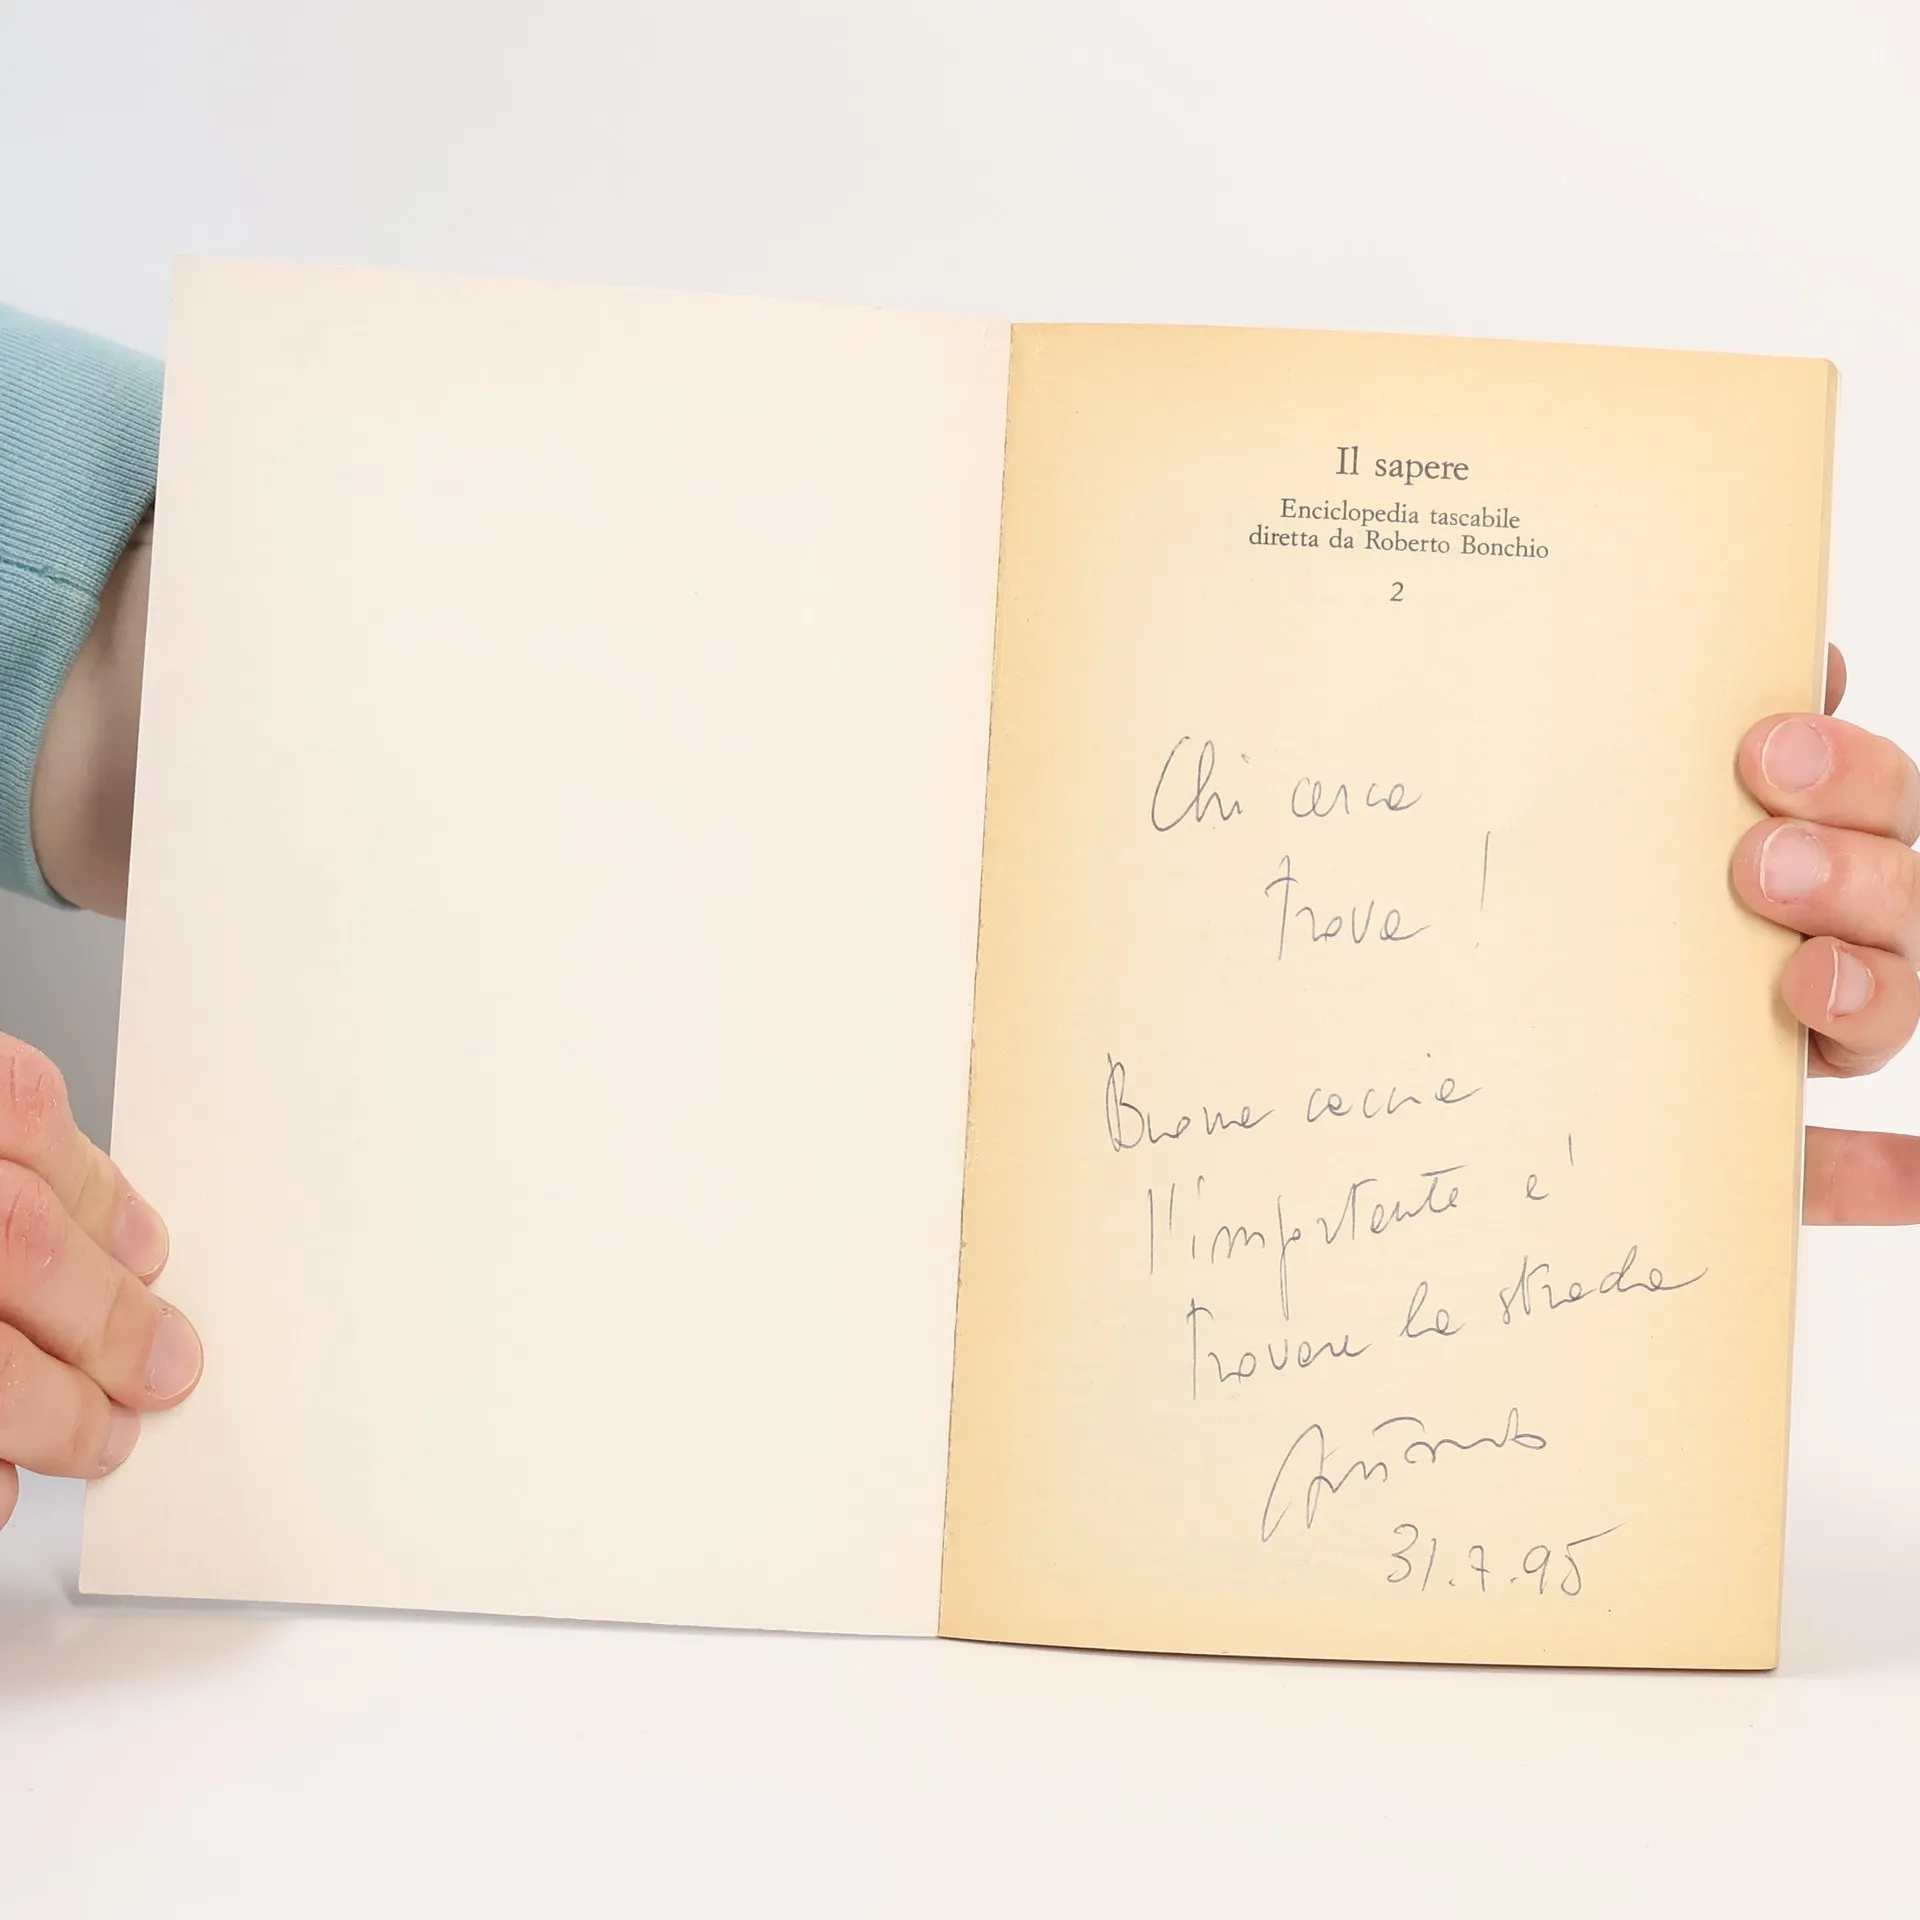 Il sapere
Enciclopedia tascabile
diretta da Roberto Bonchio
2
Chi cerca
trova!
Buona caccia
l'importante e'
trovare la strada
Antonio
31.7.95